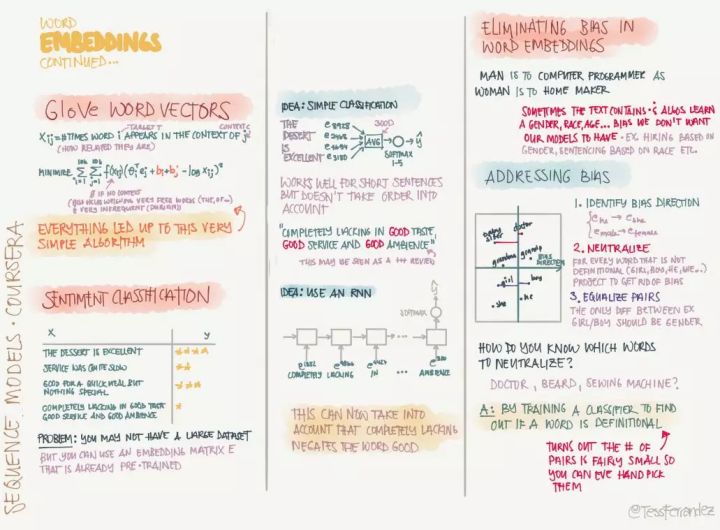 WORD
EMBEDDINGS
CONTINUED...
GloVe WORD VECTORS
TARGET t
CONTEXT c
Xij = #TIMES WORD i APPEARS IN THE CONTEXT OF j
(HOW RELATED THEY ARE)
MINIMIZE
10k 10k
∑ ∑ f(Xij)(θiᵀej + bi + bj' - log Xij)²
i=1 j=1
0 IF NO CONTEXT
VERY FREQ WORDS (THE, OF...)
& VERY INFREQUENT (DURIAN)
EVERYTHING LED UP TO THIS VERY
SIMPLE ALGORITHM
SENTIMENT CLASSIFICATION
X y
THE DESSERT IS EXCELLENT ★★★★
SERVICE WAS QUITE SLOW ★★
GOOD FOR A QUICK MEAL BUT
NOTHING SPECIAL ★★★
COMPLETELY LACKING IN GOOD TASTE
GOOD SERVICE AND GOOD AMBIENCE ★
PROBLEM: YOU MAY NOT HAVE A LARGE DATASET
BUT YOU CAN USE AN EMBEDDING MATRIX E
THAT IS ALREADY PRE-TRAINED
SEQUENCE MODELS · COURSERA
IDEA: SIMPLE CLASSIFICATION
THE e8928
DESSERT e2468
IS e4694
EXCELLENT e3180
300D
AVG
ŷ
SOFTMAX
1-5
WORKS WELL FOR SHORT SENTENCES
BUT DOESN'T TAKE ORDER INTO
ACCOUNT
"COMPLETELY LACKING IN GOOD TASTE,
GOOD SERVICE AND GOOD AMBIENCE"
THIS MAY BE SEEN AS A +++ REVIEW
IDEA: USE AN RNN
ŷ
SOFTMAX
e1852 e4966 e4427 ... e330
COMPLETELY LACKING IN ... AMBIENCE
THIS CAN NOW TAKE INTO
ACCOUNT THAT COMPLETELY LACKING
NEGATES THE WORD GOOD
ELIMINATING BIAS IN
WORD EMBEDDINGS
MAN IS TO COMPUTER PROGRAMMER AS
WOMAN IS TO HOME MAKER
SOMETIMES THE TEXT CONTAINS & ALGOS LEARN
A GENDER, RACE, AGE... BIAS WE DON'T WANT
OUR MODELS TO HAVE · EX. HIRING BASED ON
GENDER, SENTENCING BASED ON RACE ETC.
ADDRESSING BIAS
baby
sitter
doctor
grandma
grandpa
BIAS
DIRECTION
girl
boy
she
he
1. IDENTIFY BIAS DIRECTION
ehe → eshe
emale → efemale
2. NEUTRALIZE
FOR EVERY WORD THAT IS NOT
DEFINITIONAL (GIRL, BOY, HE, ME...)
PROJECT TO GET RID OF BIAS
3. EQUALIZE PAIRS
THE ONLY DIFF BETWEEN EX
GIRL/BOY SHOULD BE GENDER
HOW DO YOU KNOW WHICH WORDS
TO NEUTRALIZE?
DOCTOR, BEARD, SEWING MACHINE?
A: BY TRAINING A CLASSIFIER TO FIND
OUT IF A WORD IS DEFINITIONAL
TURNS OUT THE # OF
PAIRS IS FAIRLY SMALL SO
YOU CAN EVE HAND PICK
THEM
@TessFerrandez